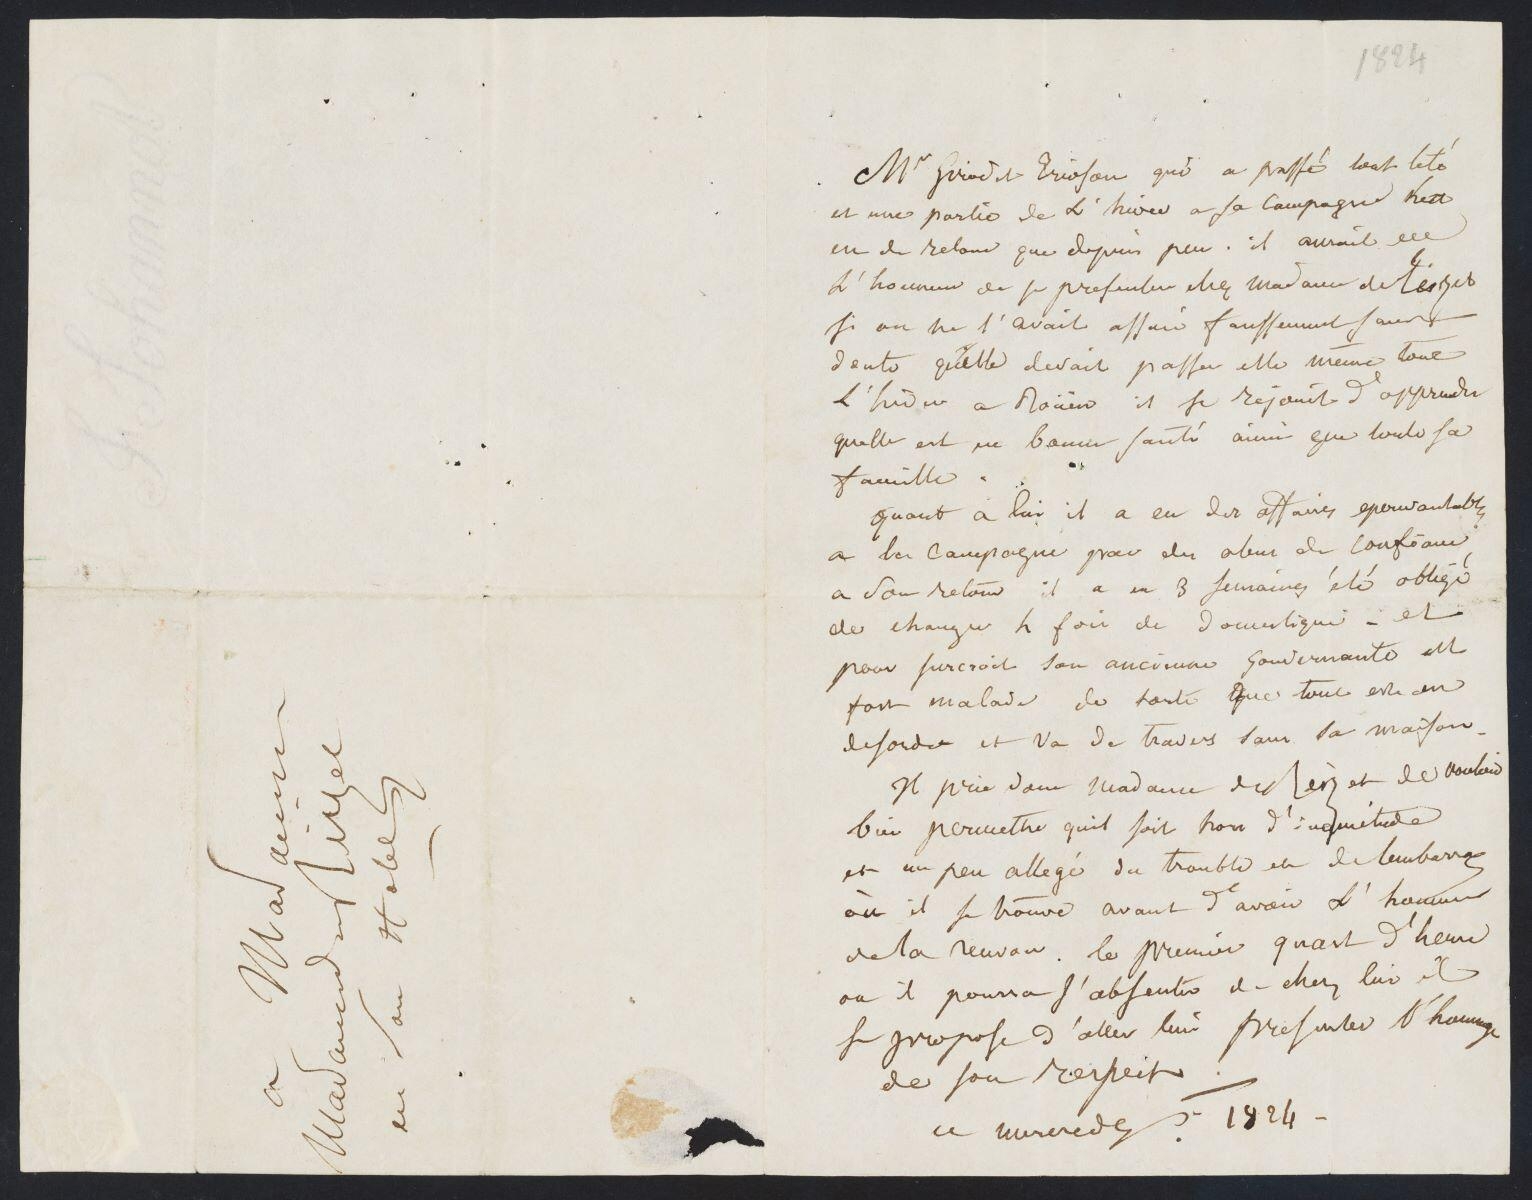 1824
Mr Girodet Trioson qui a passé tout lété
et une partie de L'hiver a sa Campagne n'est
en de retour que depuis peu. il aurait eu
L'honneur de se presenter chez Madame de
si on ne l'avait assuré faussement sans
doute quelle devait passer elle même tout
L'hiver a Roüen il se rejouit d'apprendre
quelle est en bonne santé ainsi que toute sa
famille.
quant à lui il a eu des affaires epouvantables
a la Campagne par des abus de Confiance
a son retour il a en 3 semaines été obligé
de changer 4 fois de domestique - et
pour surcroit son ancienne Gouvernante est
fort malade de sorte que tout est en
desordre et va de travers dans sa maison -
Il prie donc Madame de de vouloir
bien permettre quil soit hors d'inquiétude
et un peu allegé du trouble et de lembarras
où il se trouve avant d'avoir L'honneur
de la revoir. le premier quart d'heure
ou il pourra s'absenter de chez lui il
se propose d'aller lui presenter l'hommage
de son respect.
ce mercredy 1824 -
a Madame
Madame de
en son Hotel
Johannot